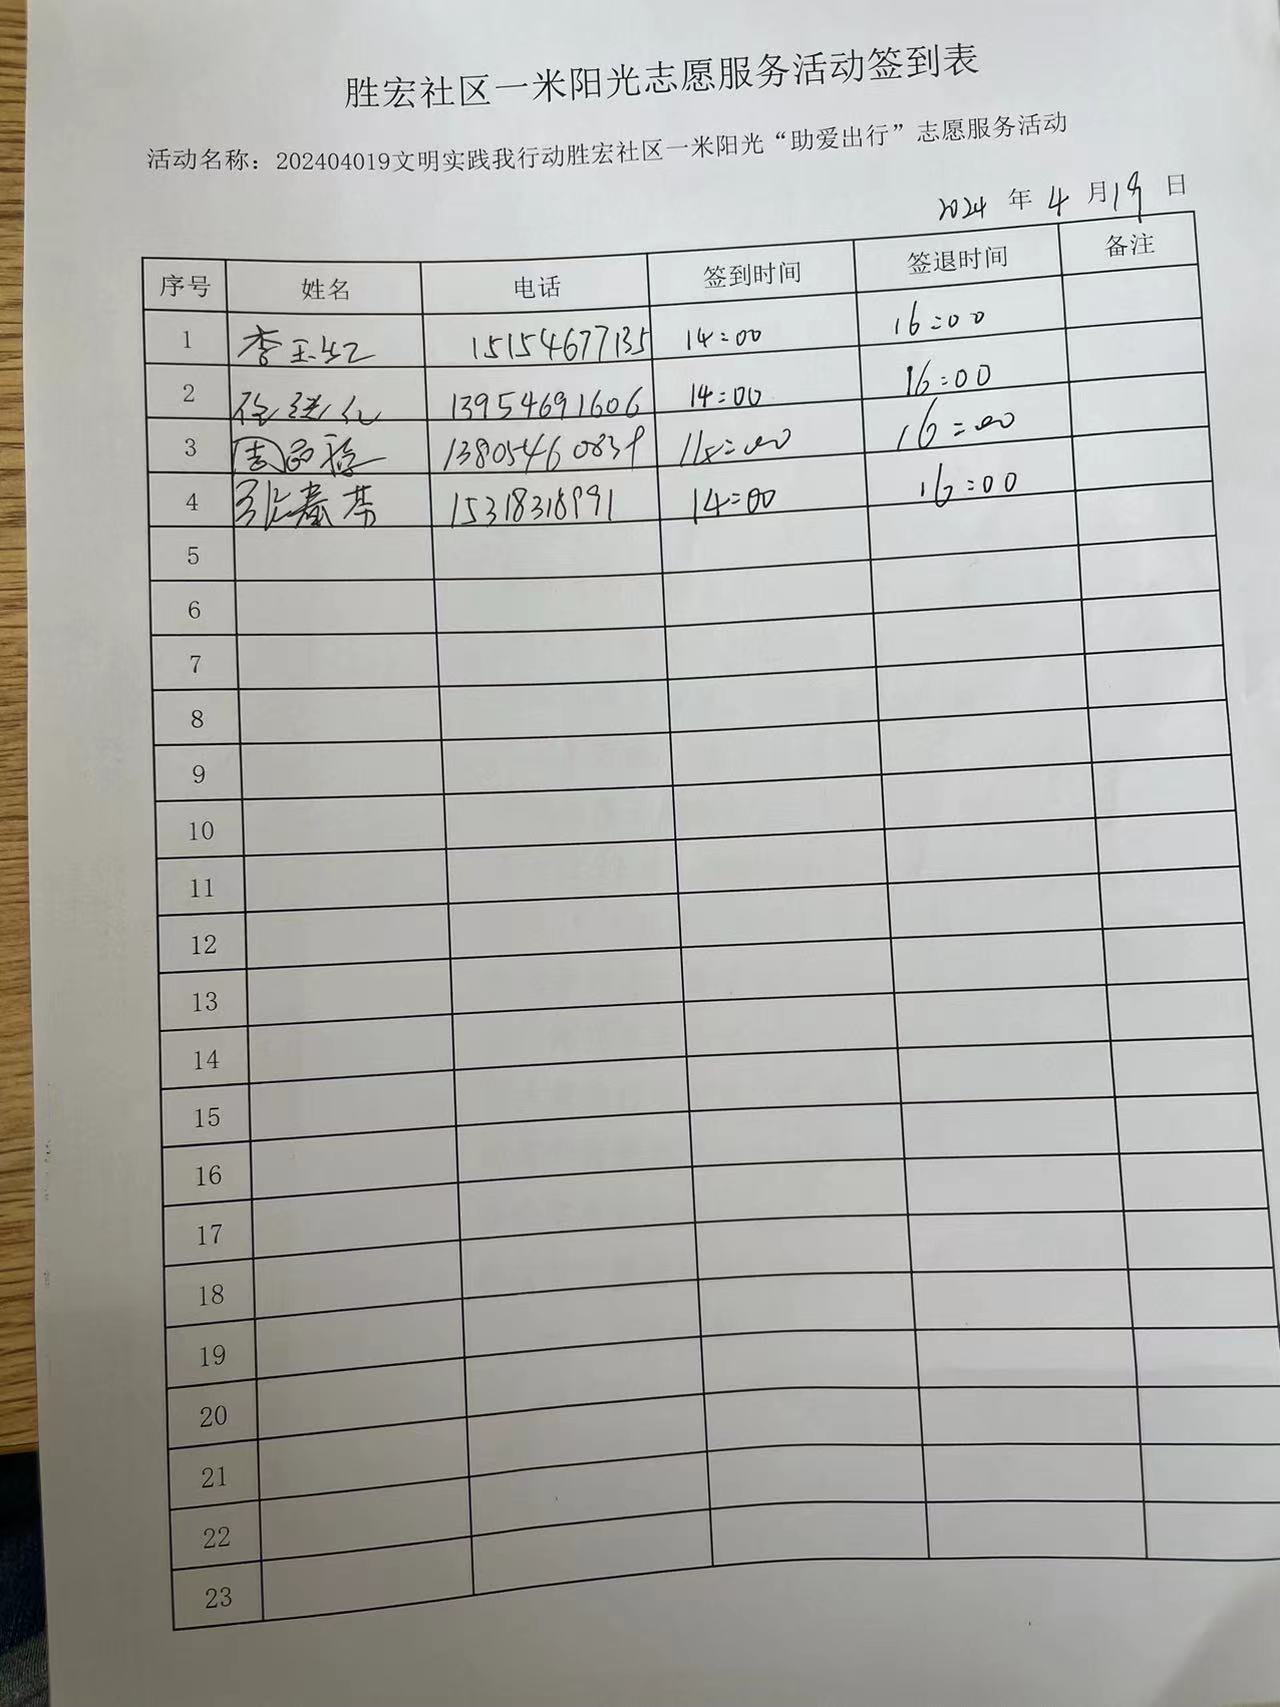 胜宏社区一米阳光志愿服务活动签到表
活动名称：202404019文明实践我行动胜宏社区一米阳光“助爱出行”志愿服务活动
2024 年 4 月 19 日
序号 姓名 电话 签到时间 签退时间 备注
1 李玉红 15154677135 14:00 16:00
2 13954691606 14:00 16:00
3 周 13805460839 16:00
4 张春芳 15318318991 14:00 16:00
5
6
7
8
9
10
11
12
13
14
15
16
17
18
19
20
21
22
23